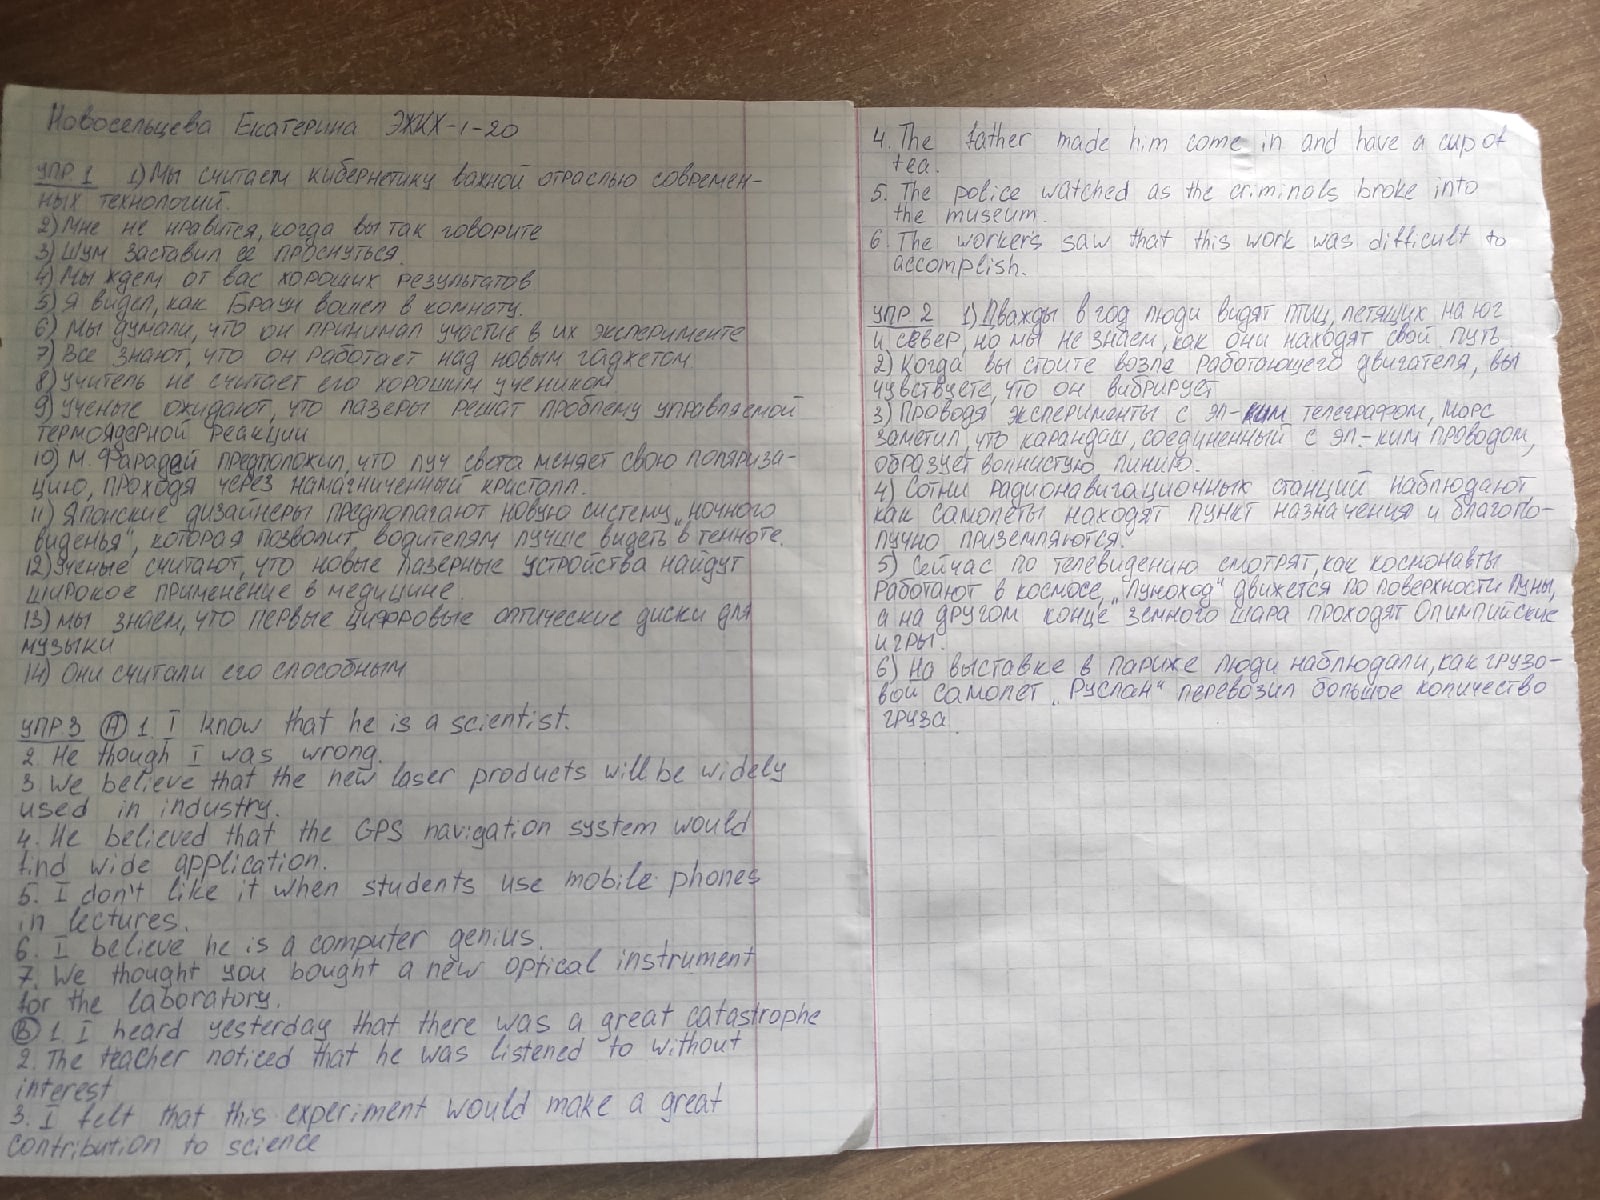 Новосельцева Екатерина ЭЖКХ-1-20
УПР 1 1) Мы считаем кибернетику важной отраслью современ-
ных технологий.
2) Мне не нравится, когда вы так говорите
3) Шум заставил её проснуться.
4) Мы ждем от вас хороших результатов
5) Я видел, как Браун вошел в комнату.
6) Мы думали, что он принимал участие в их эксперименте
7) Все знают, что он работает над новым гаджетом.
8) Учитель не считает его хорошим учеником
9) Ученые ожидают, что лазеры решат проблему управляемой
термоядерной реакции
10) М. Фарадей предположил, что луч света меняет свою поляриза-
цию, проходя через намагниченный кристалл.
11) Японские дизайнеры предполагают новую систему „ночного
виденья", которая позволит водителям лучше видеть в темноте.
12) Ученые считают, что новые лазерные устройства найдут
широкое применение в медицине.
13) мы знаем, что первые цифровые оптические диски для
музыки
14) Они считали его способным
УПР 3 (A) 1. I know that he is a scientist.
2. He though I was wrong.
3. We believe that the new laser products will be widely
used in industry.
4. He believed that the GPS navigation system would
find wide application.
5. I don't like it when students use mobile phones
in lectures.
6. I believe he is a computer genius.
7. We thought you bought a new optical instrument
for the laboratory.
(B) 1 I heard yesterday that there was a great catastrophe
2. The teacher noticed that he was listened to without
interest
3. I felt that this experiment would make a great
contribution to science
4. The father made him come in and have a cup of
tea.
5. The police watched as the criminals broke into
the museum.
6. The workers saw that this work was difficult to
accomplish.
УПР 2 1) Дважды в год люди видят птиц, летящих на юг
и север, но мы не знаем, как они находят свой путь
2) Когда вы стоите возле работающего двигателя, вы
чувствуете, что он вибрирует
3) Проводя эксперименты с эл-ким телеграфом, Морс
заметил, что карандаш, соединенный с эл-ким проводом,
образует волнистую линию.
4) Сотни радионавигационных станций наблюдают
как самолеты находят пункт назначения и благопо-
лучно приземляются.
5) Сейчас по телевидению смотрят, как космонавты
работают в космосе, „Луноход" движется по поверхности Луны,
а на другом конце земного шара проходят Олимпийские
игры.
6) На выставке в Париже люди наблюдали, как грузо-
вой самолет „Руслан" перевозил большое количество
груза.